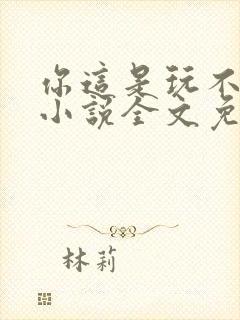 你這是玩不
小說全文免
林莉